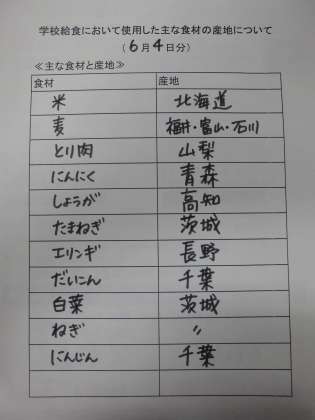 学校給食において使用した主な食材の産地について
(6月4日分)
≪主な食材と産地≫
食材 産地
米 北海道
麦 福井・富山・石川
とり肉 山梨
にんにく 青森
しょうが 高知
たまねぎ 茨城
エリンギ 長野
だいこん 千葉
白菜 茨城
ねぎ 〃
にんじん 千葉